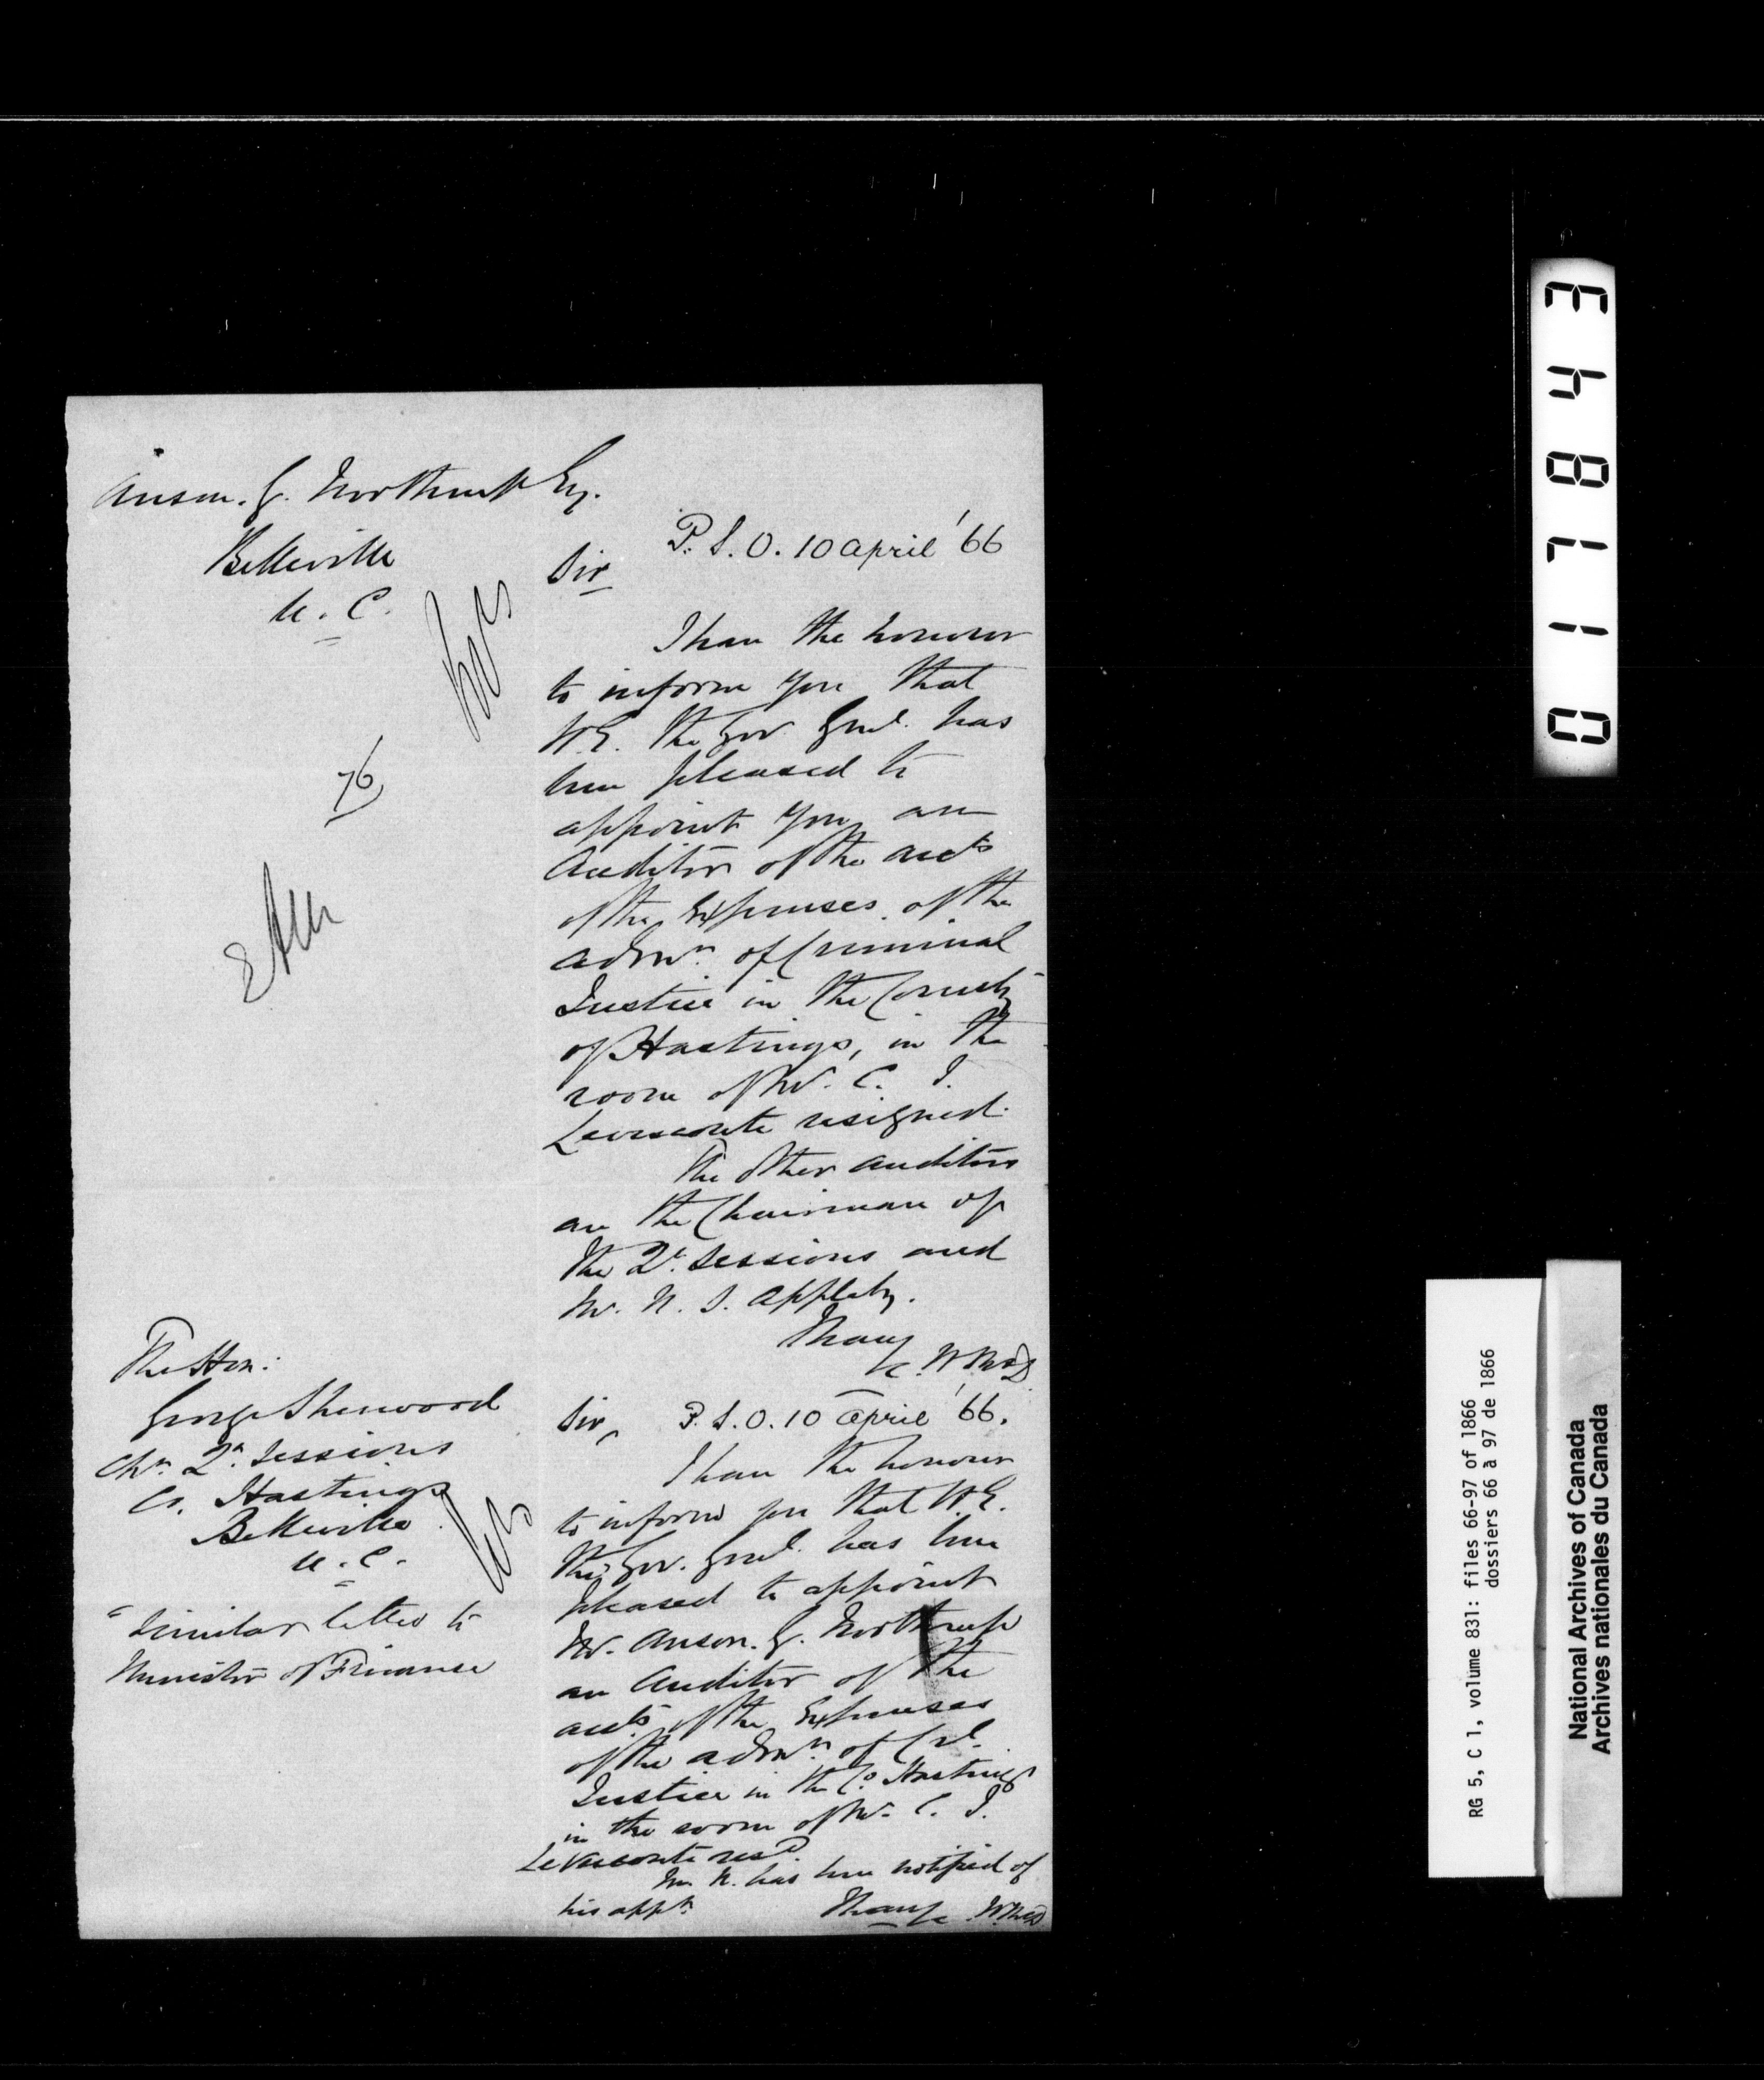 Anson. G. Northrup Esq.
Belleville
U. C.
P. S. O. 10 April '66
Sir
I have the honour
to inform you that
H.E. the Gov. Genl. has
been pleased to
appoint you an
Auditor of the Accts
of the Expenses of the
Admn. of Criminal
Justice in the County
of Hastings, in the
room of Mr. C. J.
Levesconte resigned.
The other auditors
are the Chairman of
the Qr. Sessions and
Mr. N. S. Appleby.
I have
&c. W McD
76
The Hon:
George Sherwood
Chn. Qr. Sessions
Co. Hastings
Belleville
U. C.
Similar letter to
Minister of Finance
Sir, P. S. O. 10 April '66.
I have the honour
to inform you that H.E.
the Gov. Genl. has been
pleased to appoint
Mr. Anson. G. Northrup
an Auditor of the
accts of the Expenses
of the admn. of Crl.
Justice in the Co. Hastings
in the room of Mr. C. J.
LeVesconte resd.
Mr. N. has been notified of
his appt.
I have &c W McD
0117843
RG 5, C 1, volume 831: files 66-97 of 1866
dossiers 66 à 97 de 1866
National Archives of Canada
Archives nationales du Canada